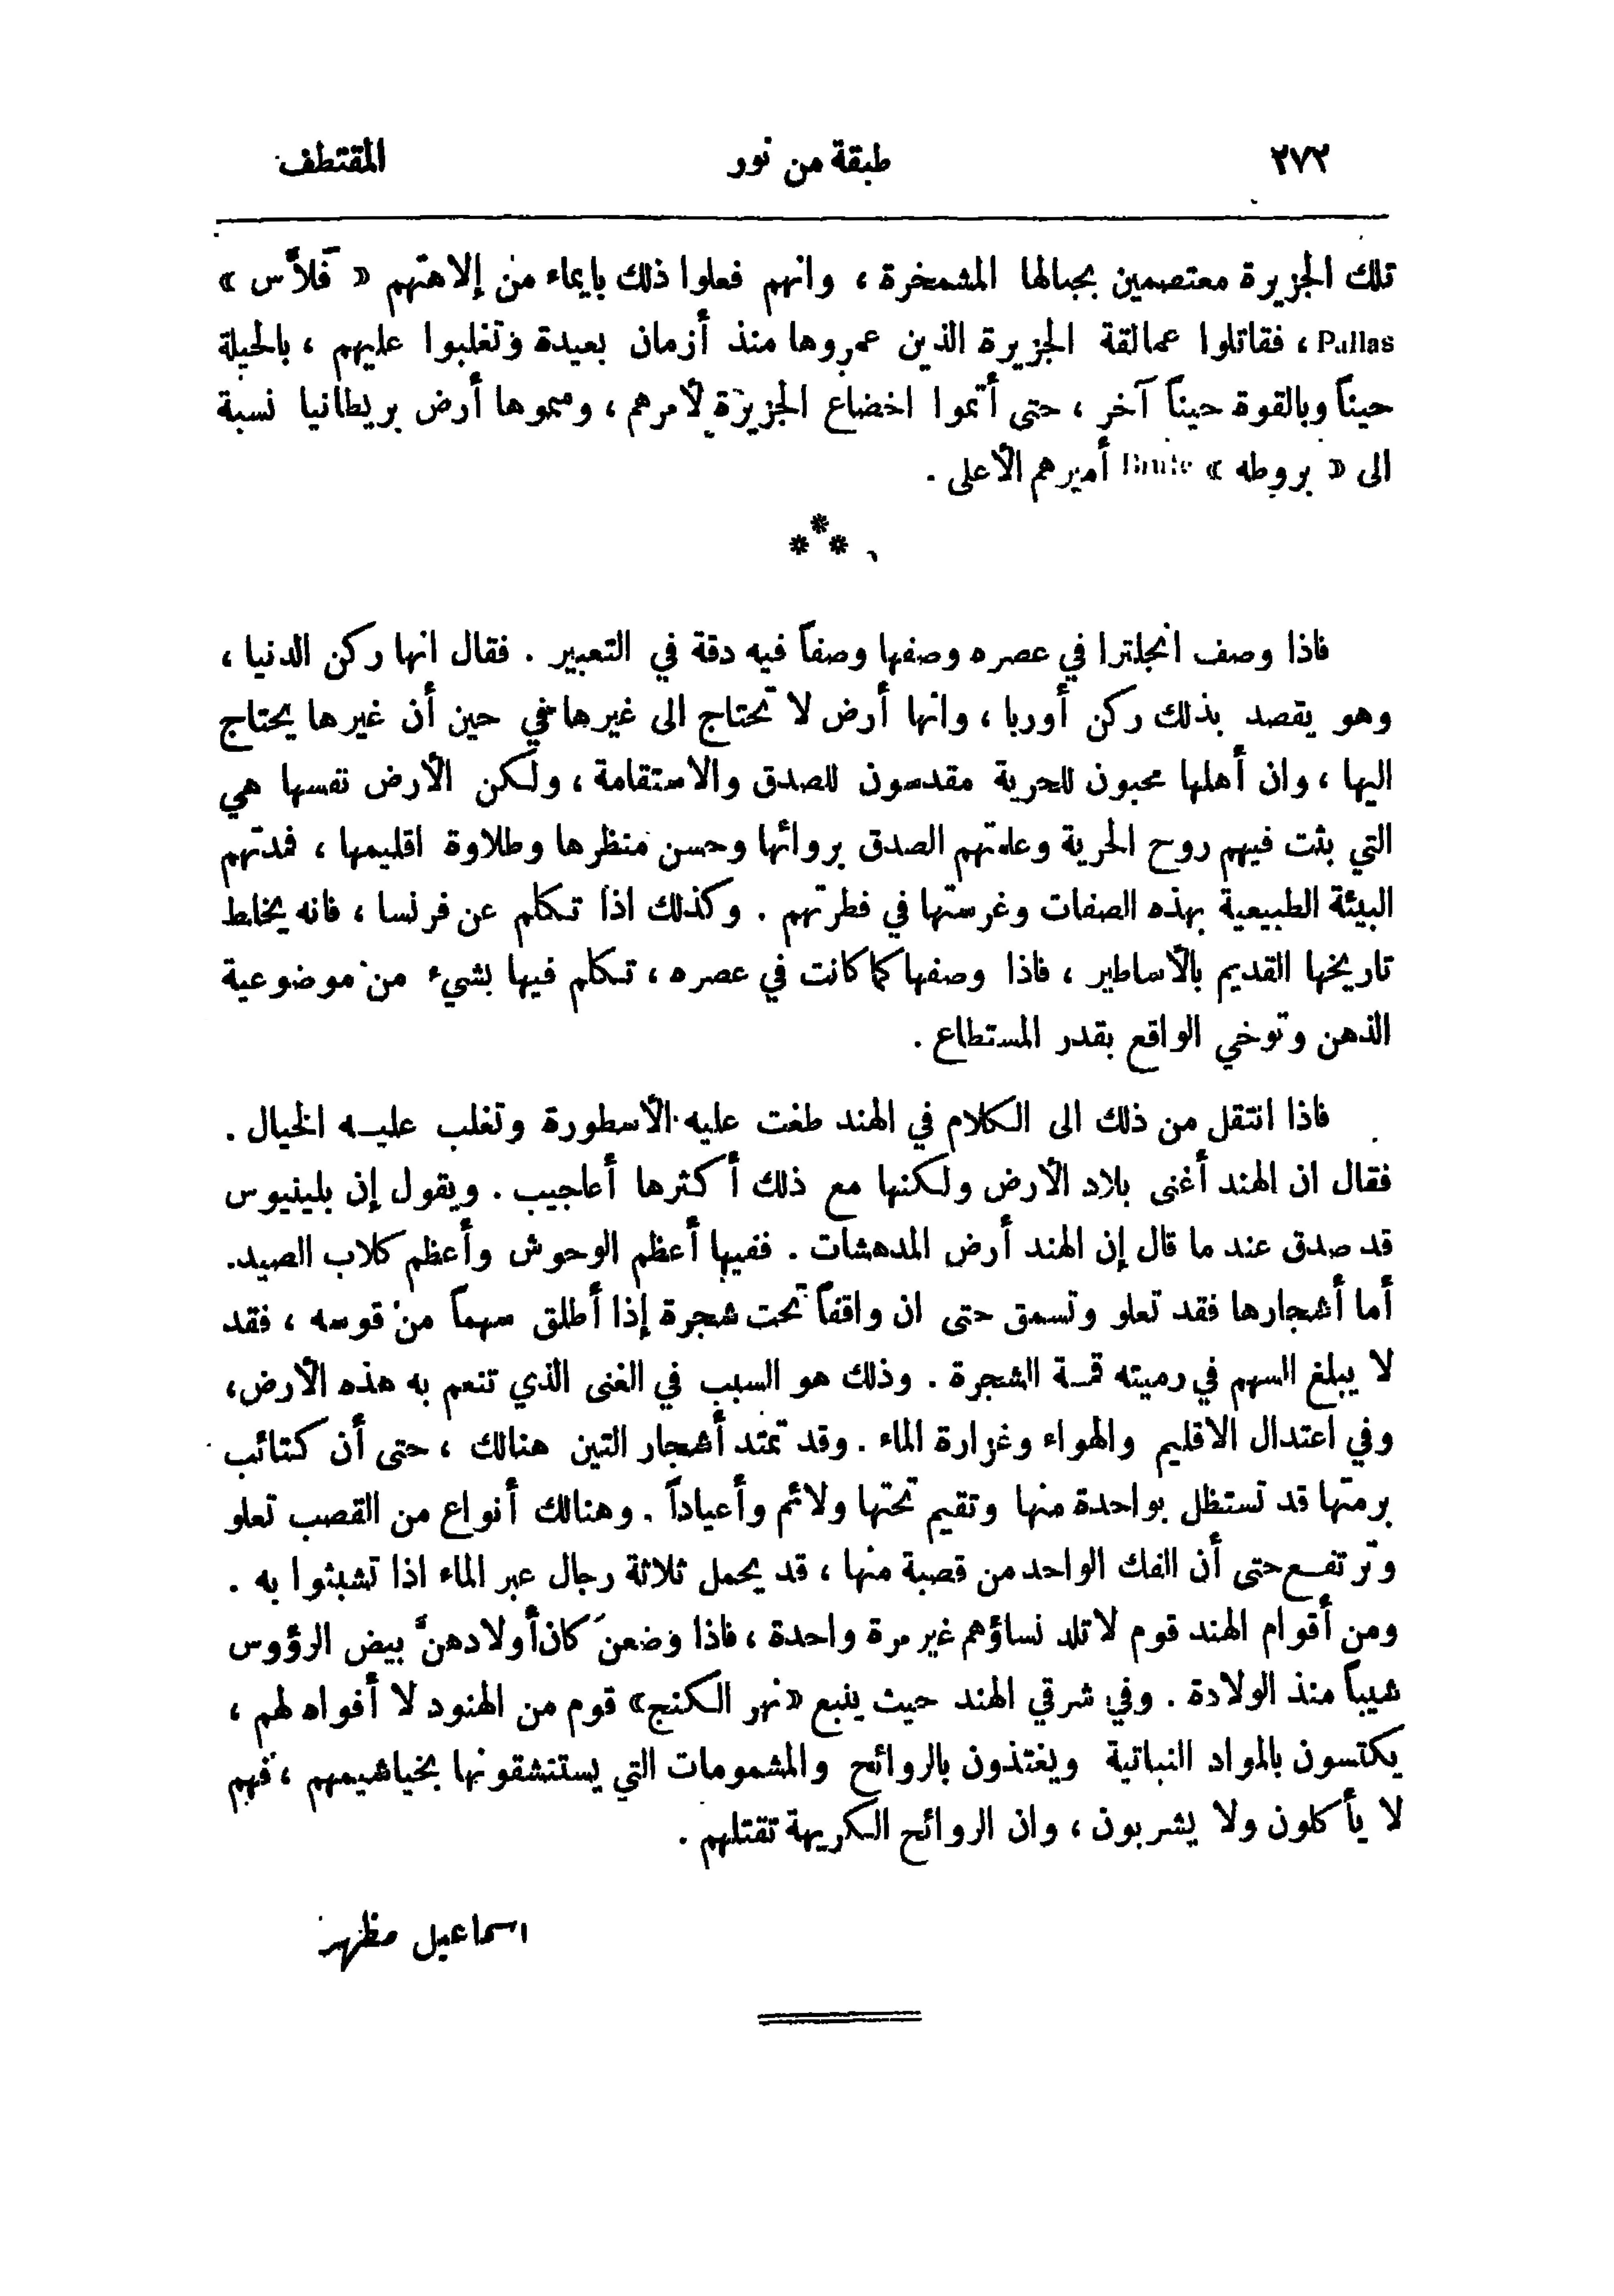 ٢٧٢ طبقة من نور المقتطف
تلك الجزيرة معتصمين بجبالها المشمخرة ، وانهم فعلوا ذلك بايماء من إلاهتهم « فَلاَّس »
Pallas ، فقاتلوا عمالقة الجزيرة الذين عمروها منذ أزمان بعيدة وتغلبوا عليهم ، بالحيلة
حيناً وبالقوة حيناً آخر ، حتى أتموا اخضاع الجزيرة لأمرهم ، وسموها أرض بريطانيا نسبة
الى « بروطه » Brute أميرهم الأعلى .
***
فاذا وصف انجلترا في عصره وصفها وصفاً فيه دقة في التعبير . فقال انها ركن الدنيا ،
وهو يقصد بذلك ركن أوربا ، وانها أرض لا تحتاج الى غيرها في حين أن غيرها يحتاج
اليها ، وان أهلها محبون للحرية مقدسون للصدق والاستقامة ، ولكن الأرض نفسها هي
التي بثت فيهم روح الحرية وعلمتهم الصدق بروائها وحسن منظرها وطلاوة اقليمها ، فمدتهم
البيئة الطبيعية بهذه الصفات وغرستها في فطرتهم . وكذلك اذا تكلم عن فرنسا ، فانه يخلط
تاريخها القديم بالأساطير ، فاذا وصفها كما كانت في عصره ، تكلم فيها بشيء من موضوعية
الذهن وتوخي الواقع بقدر المستطاع .
فاذا انتقل من ذلك الى الكلام في الهند طغت عليه الأسطورة وتغلب عليه الخيال .
فقال ان الهند أغنى بلاد الأرض ولكنها مع ذلك أكثرها أعاجيب . ويقول إن بلينيوس
قد صدق عند ما قال إن الهند أرض المدهشات . ففيها أعظم الوحوش وأعظم كلاب الصيد.
أما أشجارها فقد تعلو وتسمق حتى ان واقفاً تحت شجرة إذا أطلق سهماً من قوسه ، فقد
لا يبلغ السهم في رميته قمة الشجرة . وذلك هو السبب في الغنى الذي تنعم به هذه الأرض،
وفي اعتدال الاقليم والهواء وغزارة الماء . وقد تمتد أشجار التين هنالك ، حتى أن كتائب
برمتها قد تستظل بواحدة منها وتقيم تحتها ولائم وأعياداً . وهنالك أنواع من القصب تعلو
وترتفع حتى أن الفك الواحد من قصبة منها ، قد يحمل ثلاثة رجال عبر الماء اذا تشبثوا به .
ومن أقوام الهند قوم لا تلد نساؤهم غير مرة واحدة ، فاذا وضعن كان أولادهنَّ بيض الرؤوس
شيباً منذ الولادة . وفي شرقي الهند حيث ينبع «نهر الكنج» قوم من الهنود لا أفواه لهم ،
يكتسون بالمواد النباتية ويغتذون بالروائح والمشمومات التي يستنشقونها بخياشيمهم ، فهم
لا يأكلون ولا يشربون ، وان الروائح الكريهة تقتلهم .
اسماعيل مظهر